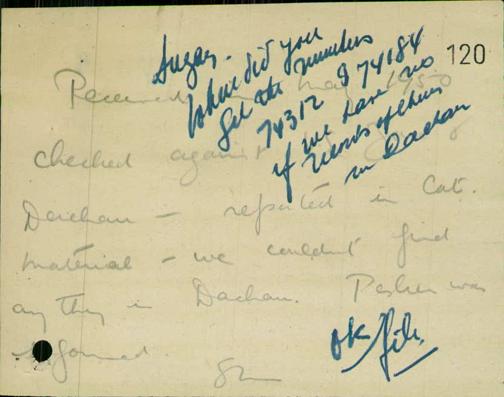 Where did you
get the numbers
74312 & 74184
if we have no
records of them
in Dachau
120
Received May 1950
checked against
Dachau - reported in Cat.
material - we couldn't find
any they in Dachau. was
informed.
OK file